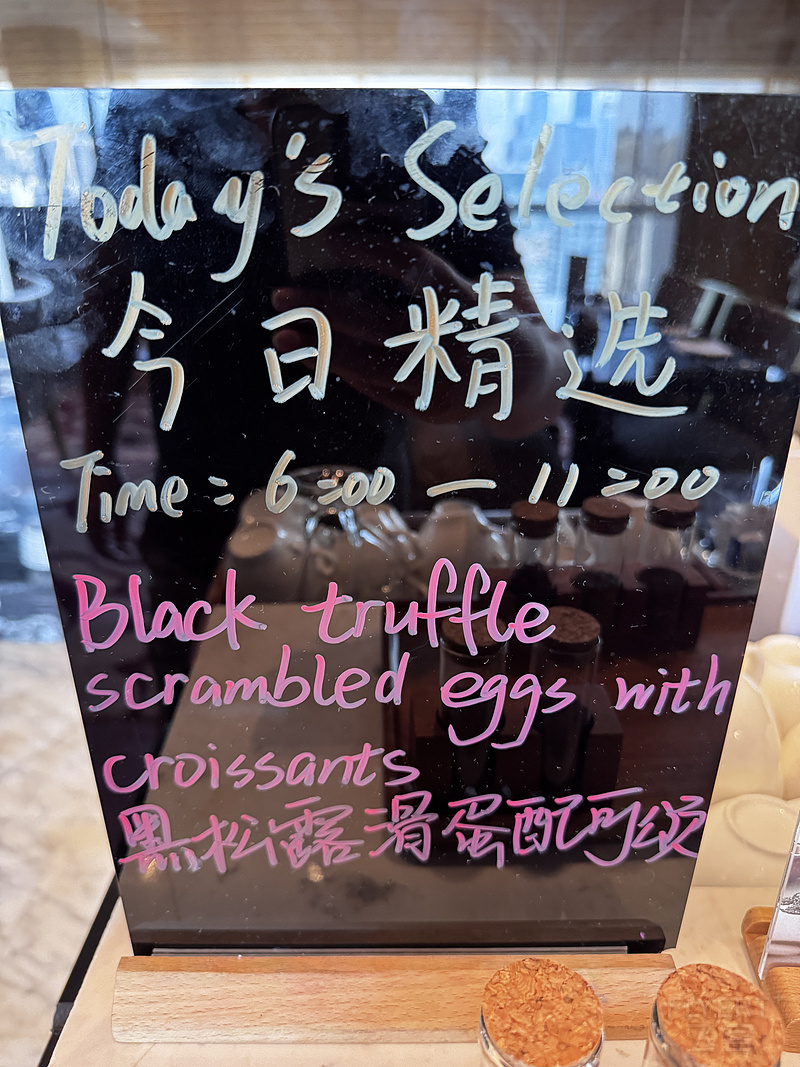 Today's Selection
今日精选
Time: 6:00 — 11:00
Black truffle
scrambled eggs with
croissants
黑松露滑蛋配可颂